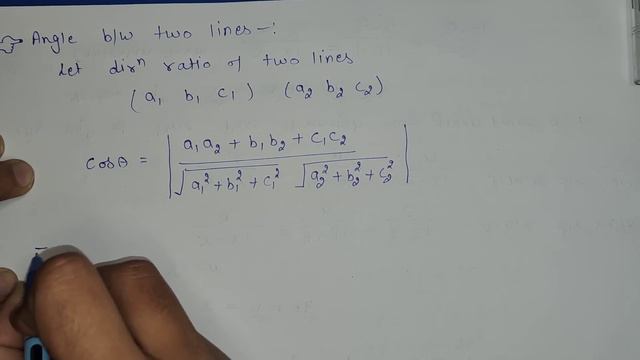 Angle b/w two lines -:
Let dirⁿ ratio of two lines
(a₁ b₁ c₁) (a₂ b₂ c₂)
cosθ = | a₁a₂ + b₁b₂ + c₁c₂ / √a₁² + b₁² + c₁² √a₂² + b₂² + c₂² |